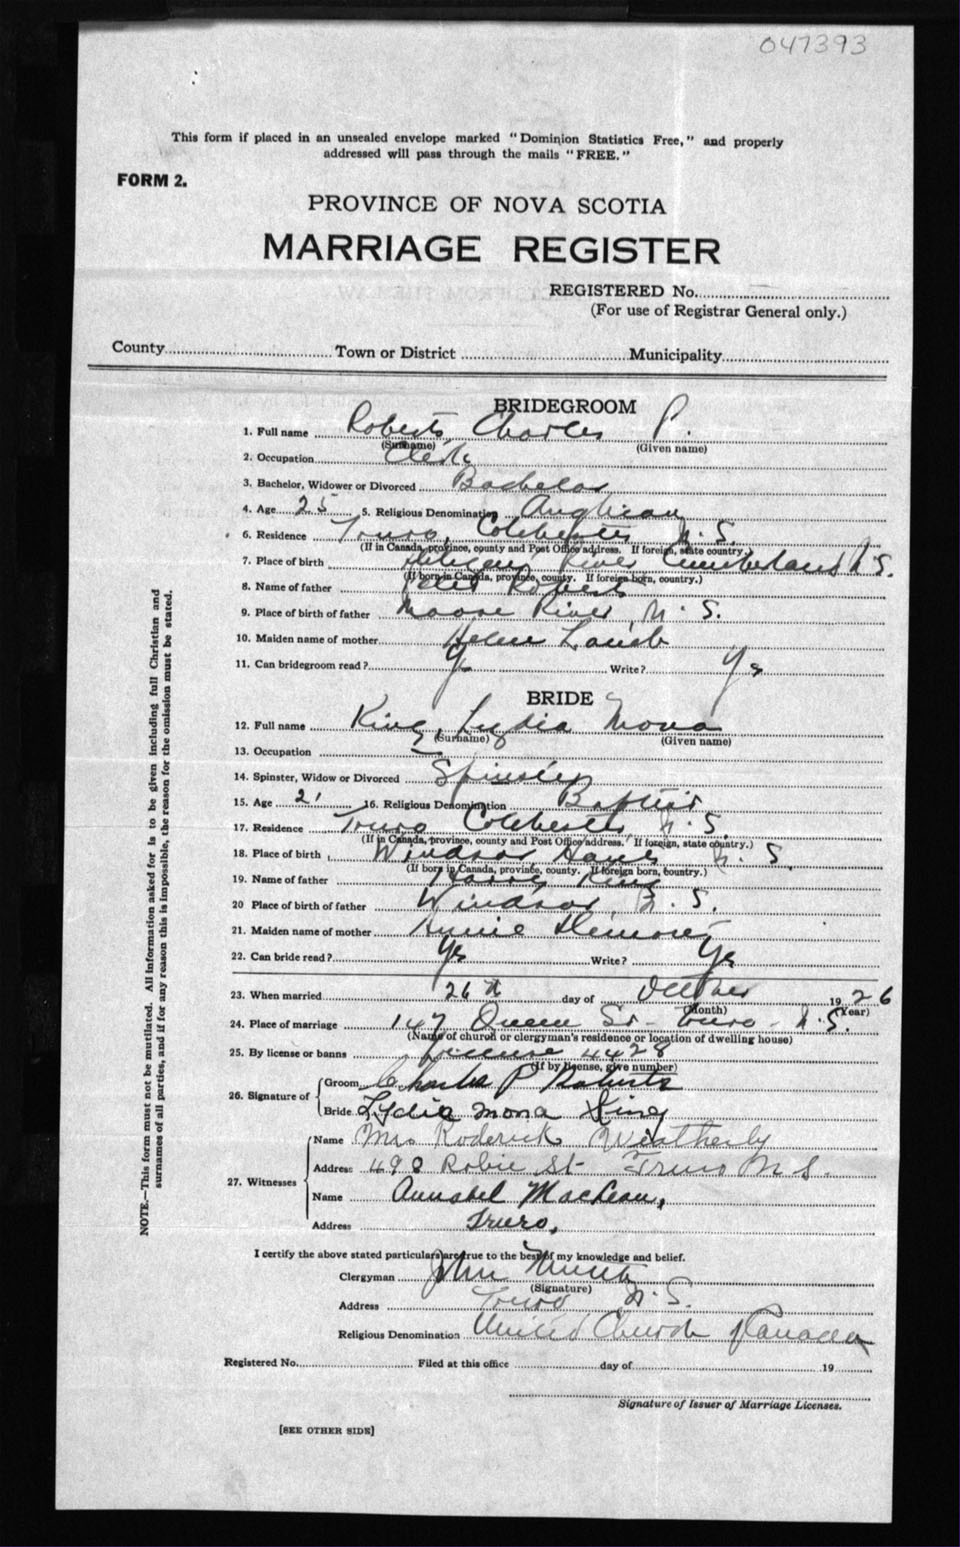 047393
This form if placed in an unsealed envelope marked "Dominion Statistics Free," and properly
addressed will pass through the mails "FREE."
FORM 2.
PROVINCE OF NOVA SCOTIA
MARRIAGE REGISTER
REGISTERED No.
(For use of Registrar General only.)
County Town or District Municipality
BRIDEGROOM
1. Full name Roberts, Charles P.
(Surname) (Given name)
2. Occupation Clerk
3. Bachelor, Widower or Divorced Bachelor
4. Age 25 5. Religious Denomination Anglican
6. Residence Truro, Colchester N.S.
(If in Canada, province, county and Post Office address. If foreign, state country.)
7. Place of birth River Cumberland N.S.
(If born in Canada, province, county. If foreign born, country.)
8. Name of father Roberts
9. Place of birth of father Moose River, N.S.
10. Maiden name of mother Helen Lamb
11. Can bridegroom read? Yes Write? Yes
BRIDE
12. Full name King, Lydia Mona
(Surname) (Given name)
13. Occupation —
14. Spinster, Widow or Divorced Spinster
15. Age 21 16. Religious Denomination Baptist
17. Residence Truro Colchester N.S.
(If in Canada, province, county and Post Office address. If foreign, state country.)
18. Place of birth Windsor, Hants N.S.
(If born in Canada, province, county. If foreign born, country.)
19. Name of father Harry King
20 Place of birth of father Windsor, N.S.
21. Maiden name of mother Annie
22. Can bride read? Yes Write? Yes
23. When married 26th day of October 1926
(Month) (Year)
24. Place of marriage 147 Queen St - Truro - N.S.
(Name of church or clergyman's residence or location of dwelling house)
25. By license or banns License 4428
(If by license, give number)
26. Signature of
Groom Charles P Roberts
Bride Lydia Mona King
27. Witnesses
Name Mrs Roderick Weatherby
Address 498 Robie St - Truro N S.
Name Annabel MacLean,
Address Truro,
I certify the above stated particulars are true to the best of my knowledge and belief.
Clergyman John
(Signature)
Address Truro N.S.
Religious Denomination United Church of Canada
Registered No. Filed at this office day of 19
Signature of Issuer of Marriage Licenses.
[SEE OTHER SIDE]
NOTE.—This form must not be mutilated. All information asked for is to be given including full Christian and
surnames of all parties, and if for any reason this is impossible, the reason for the omission must be stated.